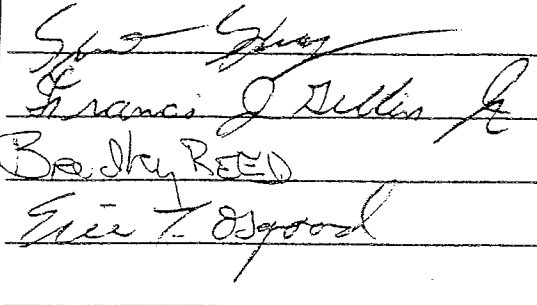 Francis J Gillin Jr
Bradley REED
Eric T. Osgood